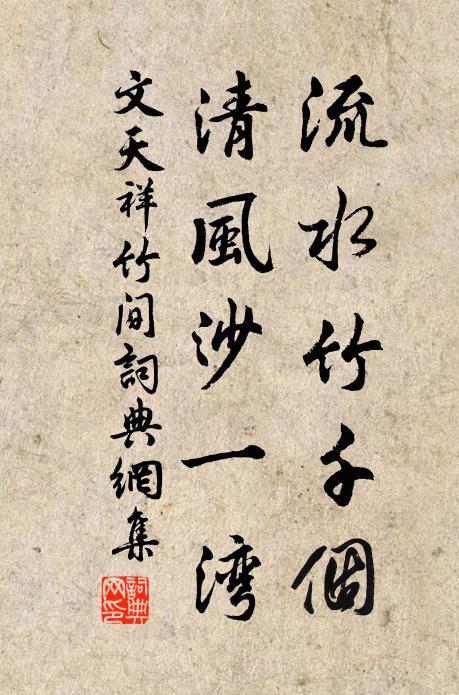 流水竹千個
清風沙一灣
文天祥竹间詞典網集
詞典網印